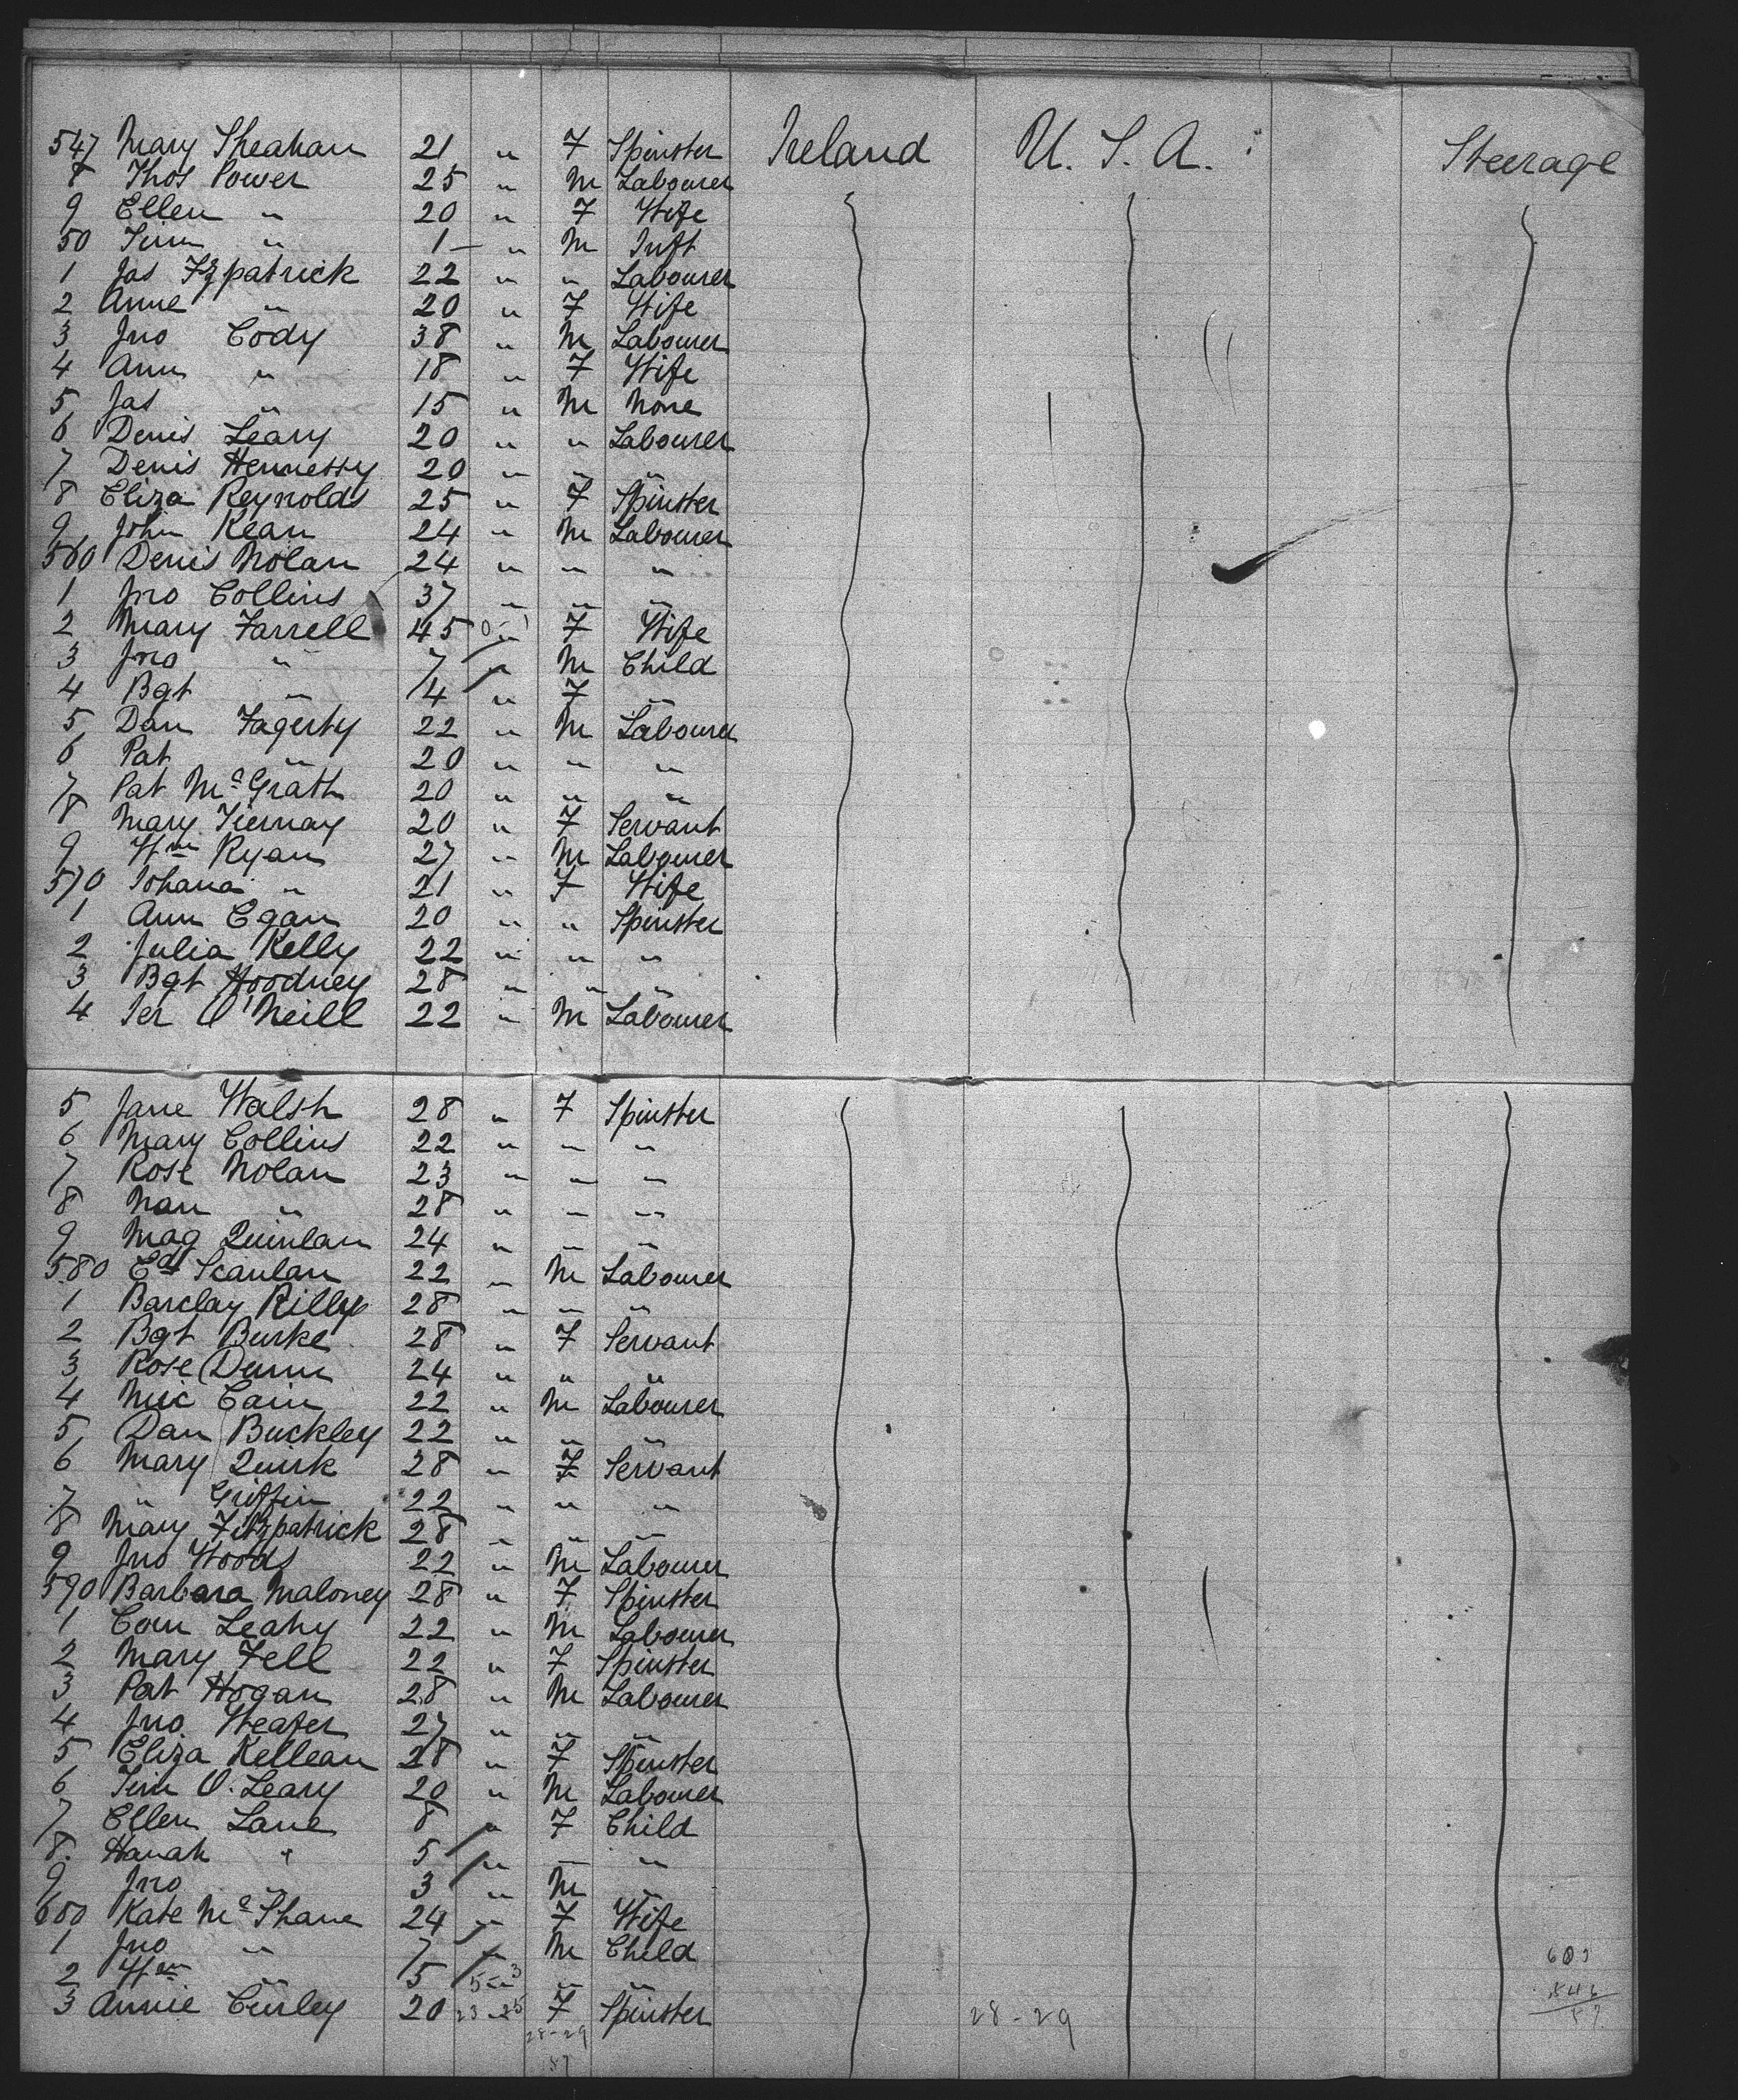 547 Mary Sheahan 21 " F Spinster Ireland U.S.A. Steerage
8 Thos Power 25 " M Labourer
9 Ellen " 20 " F Wife
50 Tim " 1 - " M Inft
1 Jas Fzpatrick 22 " " Labourer
2 Anne " 20 " F Wife
3 Jno Cody 38 " M Labourer
4 Ann " 18 " F Wife
5 Jas " 15 " M None
6 Denis Leary 20 " " Labourer
7 Denis Hennessy 20 " " "
8 Eliza Reynolds 25 " F Spinster
9 John Kean 24 " M Labourer
560 Denis Nolan 24 " " "
1 Jno Collins 37 " " "
2 Mary Farrell 45 " F Wife
3 Jno " 7 " M Child
4 Bgt " 4 " F "
5 Dan Fagerty 22 " M Labourer
6 Pat " 20 " " "
7 Pat McGrath 20 " " "
8 Mary Tiernay 20 " F Servant
9 Wm Ryan 27 " M Labourer
570 Johana " 21 " F Wife
1 Ann Egan 20 " " Spinster
2 Julia Kelly 22 " " "
3 Bgt Woodney 28 " " "
4 Jer O'Neill 22 " M Labourer
5 Jane Walsh 28 " F Spinster
6 Mary Collins 22 " " "
7 Rose Nolan 23 " " "
8 Nan " 28 " " "
9 Mag Quinlan 24 " " "
580 Ed Scanlan 22 " M Labourer
1 Barclay Rilly 28 " " "
2 Bgt Burke 28 " F Servant
3 Rose Dunn 24 " " "
4 Mic Cain 22 " M Labourer
5 Dan Buckley 22 " " "
6 Mary Quirk 28 " F Servant
7 " Griffin 22 " " "
8 Mary Fitzpatrick 28 " " "
9 Jno Woods 22 " M Labourer
590 Barbara Maloney 28 " F Spinster
1 Corn Leahy 22 " M Labourer
2 Mary Fell 22 " F Spinster
3 Pat Hogan 28 " M Labourer
4 Jno Weafer 27 " " "
5 Eliza Kellean 28 " F Spinster
6 Tim O. Leary 20 " M Labourer
7 Ellen Lane 8 " F Child
8 Hanah " 5 " " "
9 Jno " 3 " M "
600 Kate McShane 24 " F Wife
1 Jno " 7 " M Child
2 Wm " 5 " " "
3 Annie Curley 20 " F Spinster
28-29 28-29
57
603
546
57